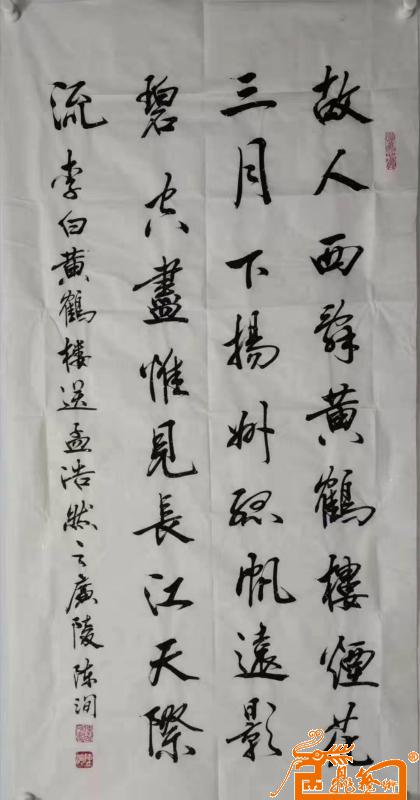 故人西辭黃鶴樓煙花
三月下揚州孤帆遠影
碧空盡惟見長江天際
流 李白黃鶴樓送孟浩然之廣陵 陈洵